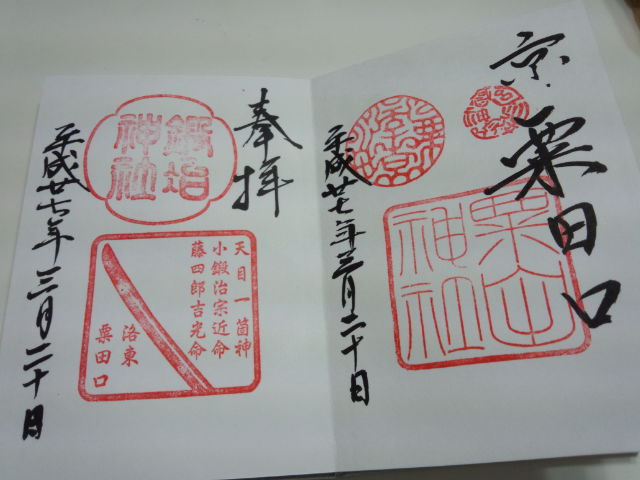 京 粟田口
粟田神社
平成廿七年三月二十日
奉拝
鍛冶神社
天目一箇神
小鍛治宗近命
藤四郎吉光命
洛東
粟田口
平成廿七年三月二十日